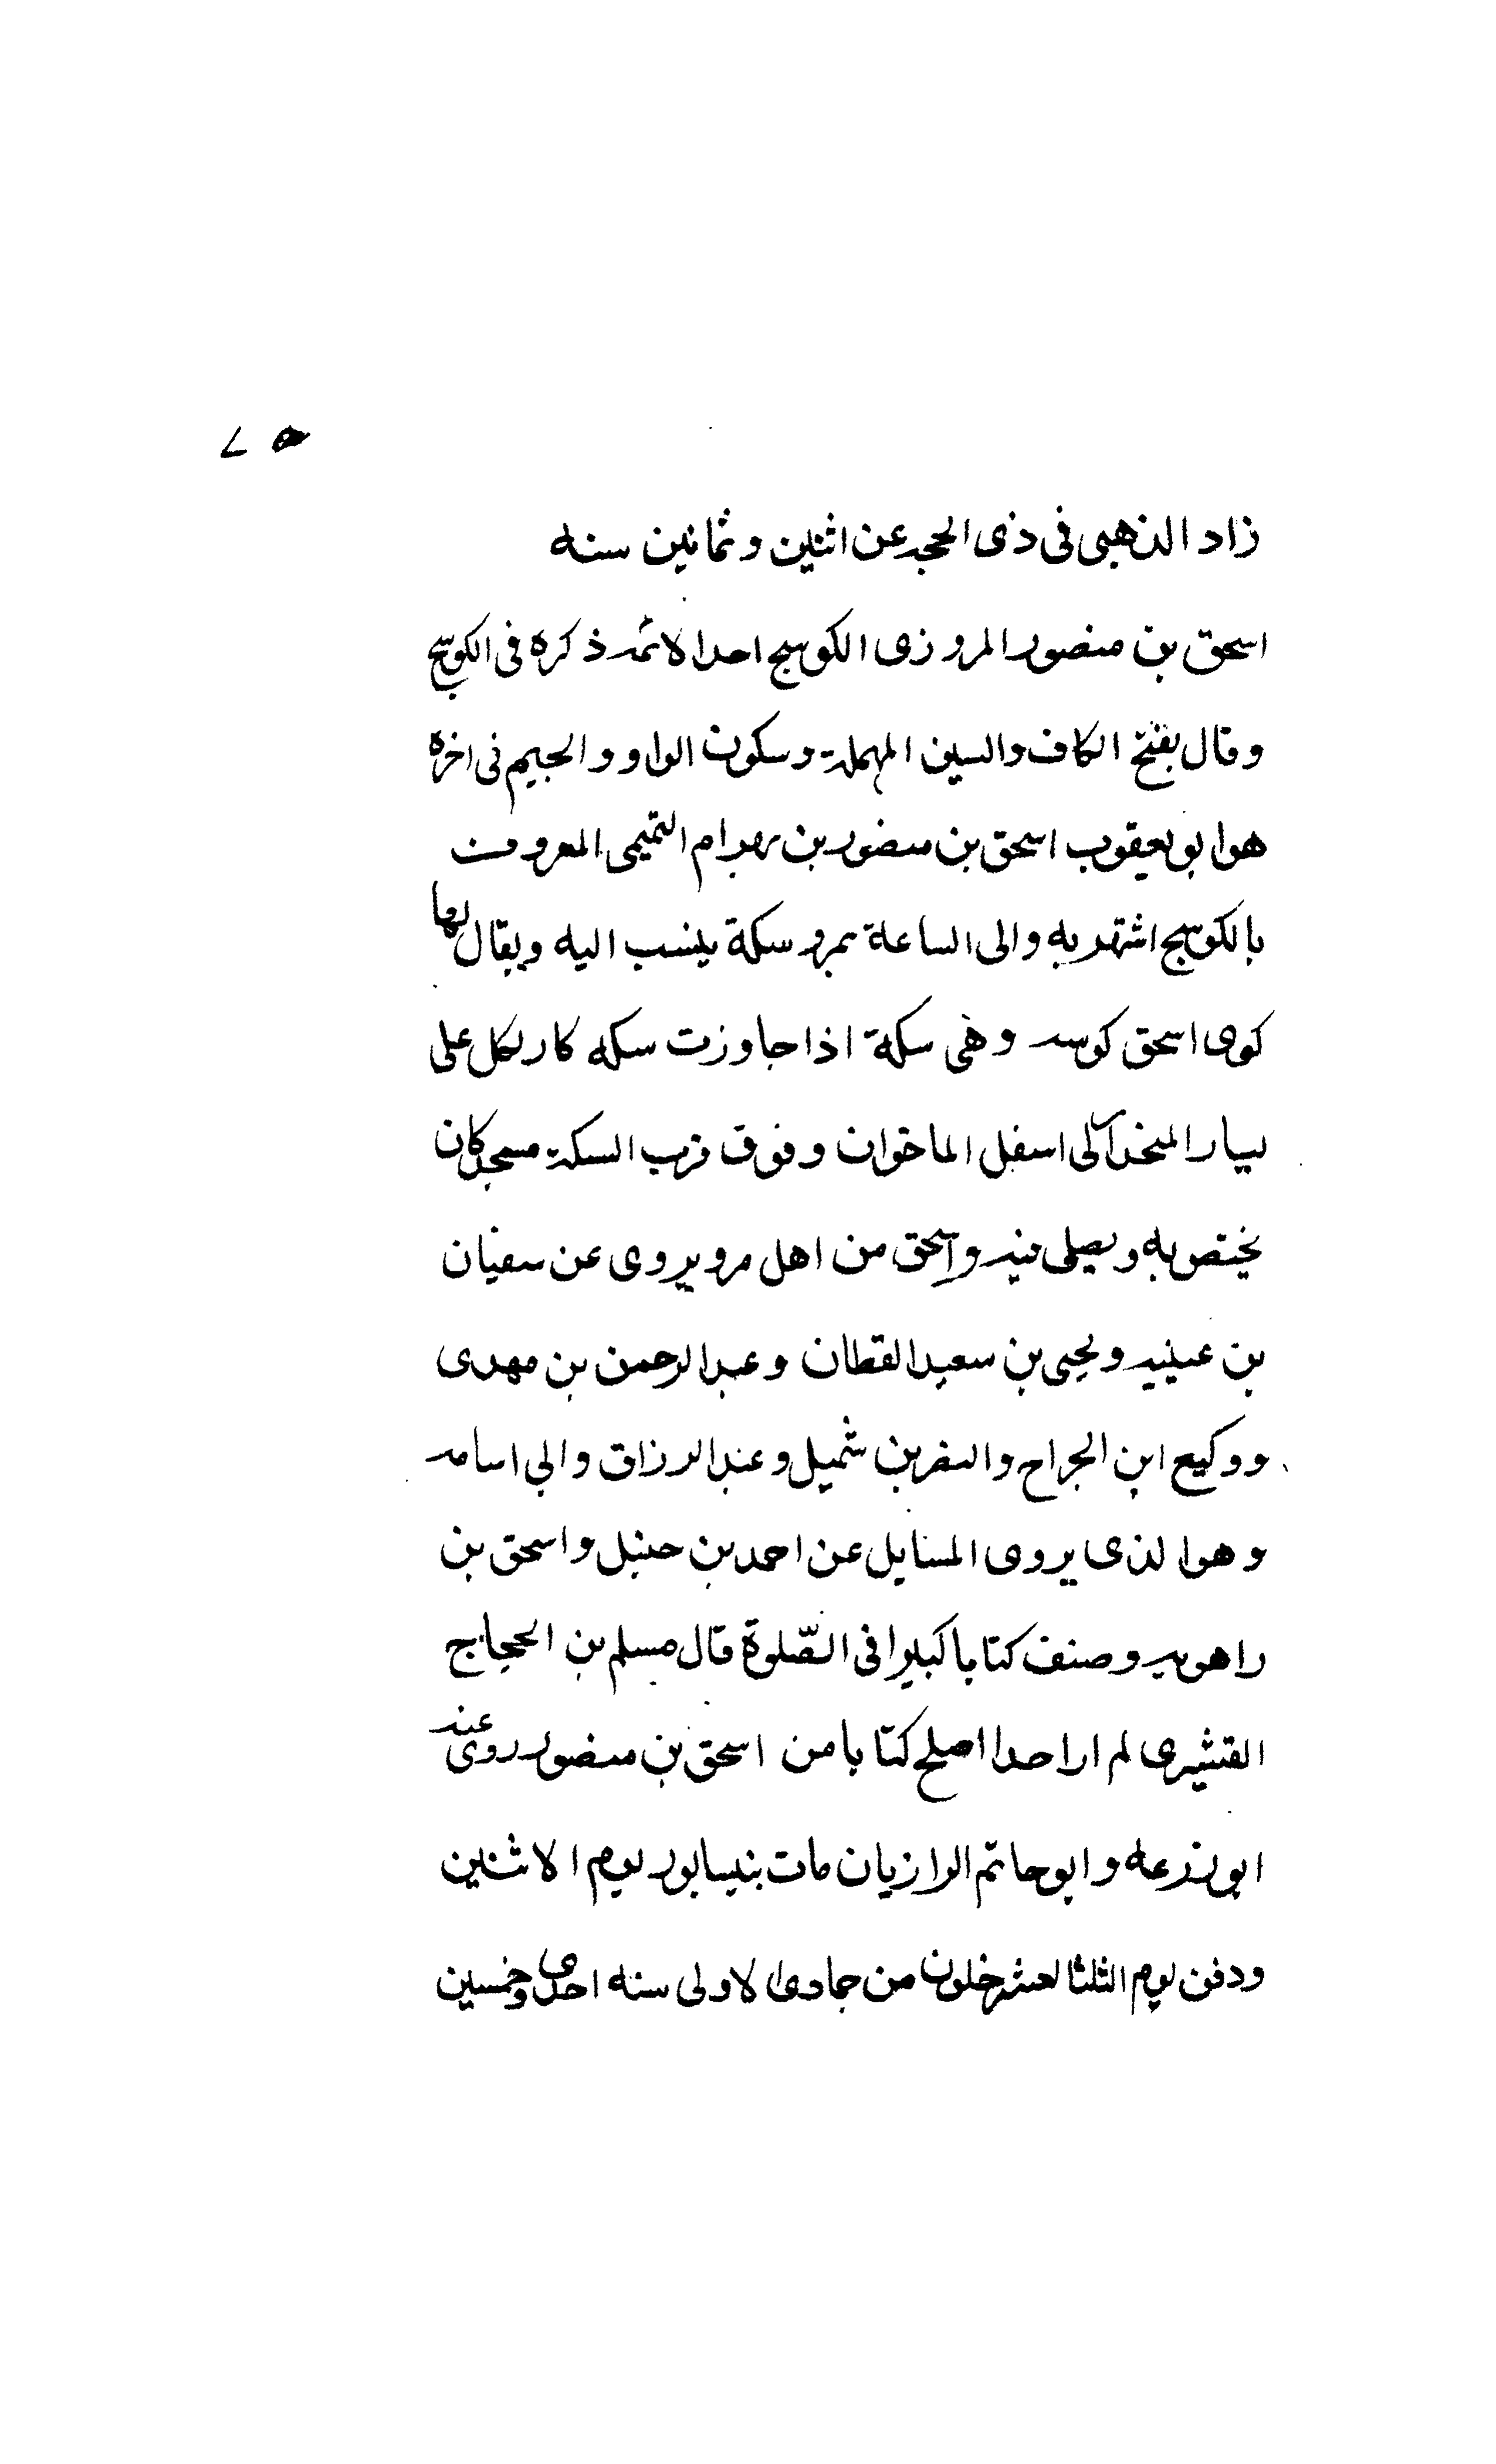 زاد الذهبى فى ذى الحجه عن اثنين وثمانين سنه
اسحق بن منصور المروزى الكوسج احد الائمه ذكره فى الكوسج
وقال بفتح الكاف والسين المهملة وسكون الواو والجيم فى اخره
هو ابو يعقوب اسحق بن منصور بن بهرام التميمى المعروف
بالكوسج اشتهر به والى الساعة بمرو سكة ينسب اليه ويقال لها
كوى اسحق كوسه وهى سكة اذا جاوزت سكه كارلكل على
يسار المنحدر الى اسفل الماخوان وفوق قرب السكة مسجد كان
يختص به ويصلى فيه واسحق من اهل مرو يروى عن سفيان
بن عيينه ويحيى بن سعيد القطان وعبد الرحمن بن مهدى
ووكيع ابن الجراح والنضر بن شميل وعبد الرزاق وابى اسامه
وهو الذى يروى المسايل عن احمد بن حنبل واسحق بن
راهويه وصنف كتابا كبيرا فى الصّلوة قال مسلم بن الحجاج
القشيرى لم ار احدا اصلح كتابا من اسحق بن منصور روى عنه
ابو زرعه وابو حاتم الرازيان مات بنيسابور يوم الاثنين
ودفن يوم الثلثا لعشر خلون من جمادى الاولى سنه احدى وخمسين